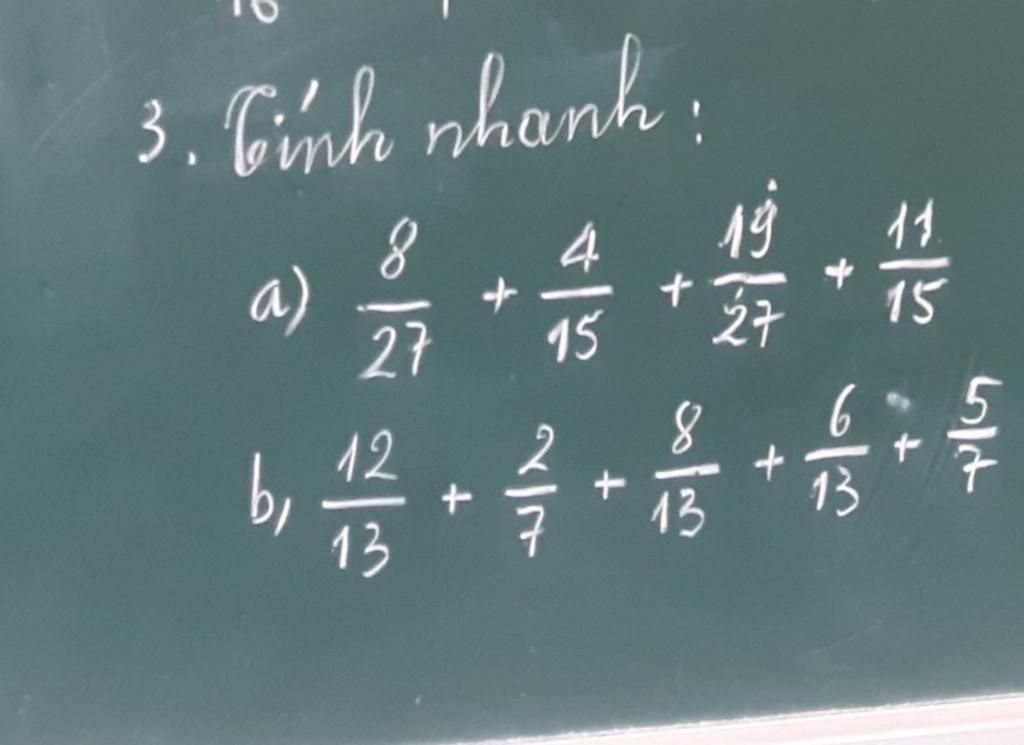 3. Tính nhanh:
a) 8/27 + 4/15 + 19/27 + 11/15
b, 12/13 + 2/7 + 8/13 + 6/13 + 5/7